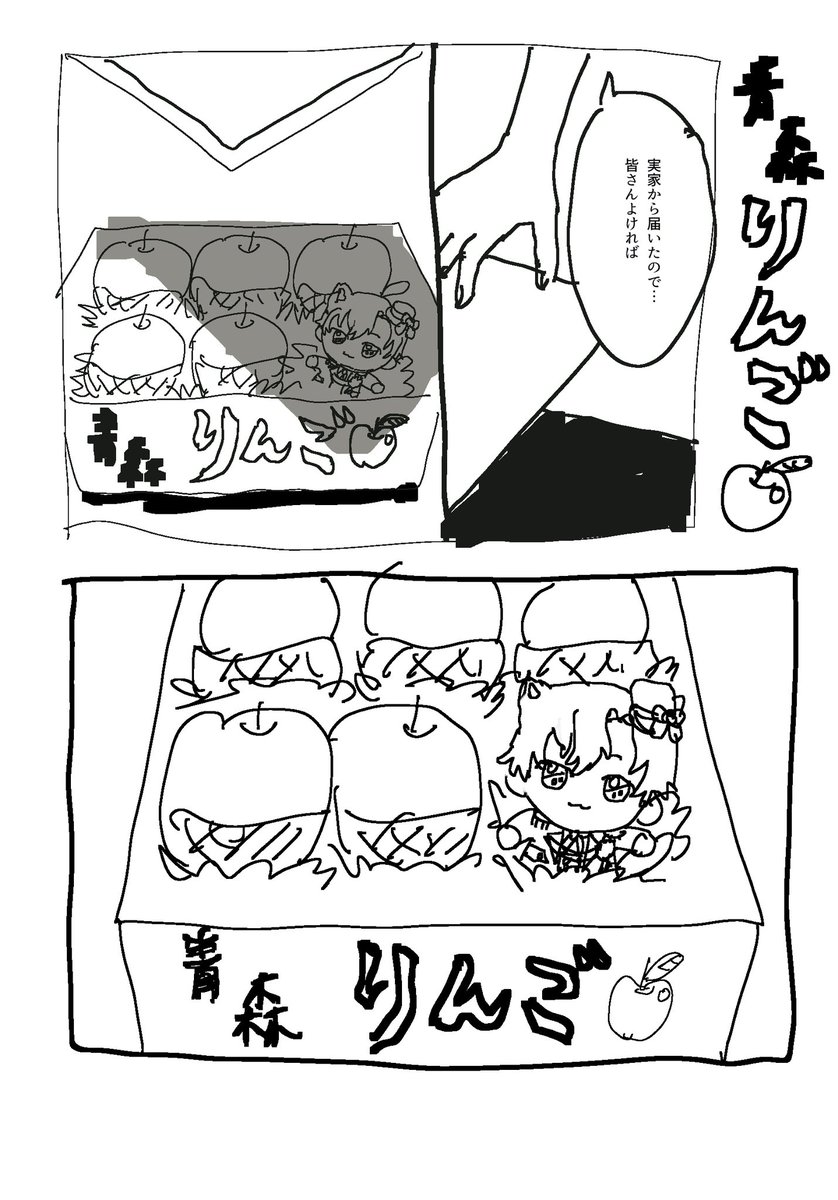 青森りんご
実家から届いたので…
皆さんよければ
青森りんご
青森りんご